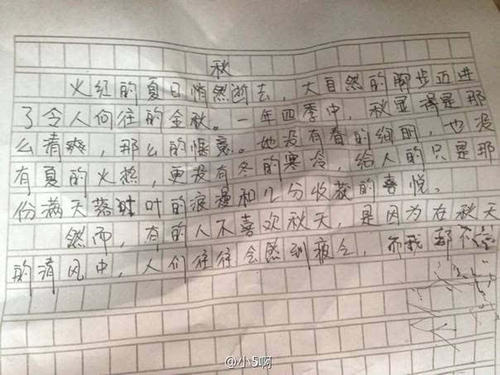 秋
火红的夏日悄然逝去，大自然的脚步迈进
了令人向往的金秋。一年四季中，秋显得是那
么清爽，那么的惬意。她没有春的细雨，也没
有夏的火热，更没有冬的寒冷，给人的只是那
份满天落叶的浪漫和几分收获的喜悦。
然而，有的人不喜欢秋天，是因为在秋天
的清风中，人们往往会感到疲乏，而我却不
@小5啊